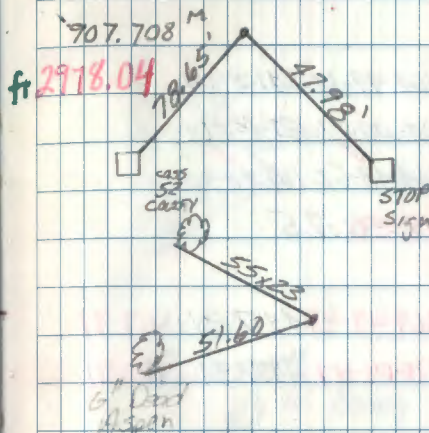 907.708 M
ft 2978.04
78.65'
47.98'
CASS
52
COUNTY
STOP
Sign
55x23
51.60
6" Dead
Aspen